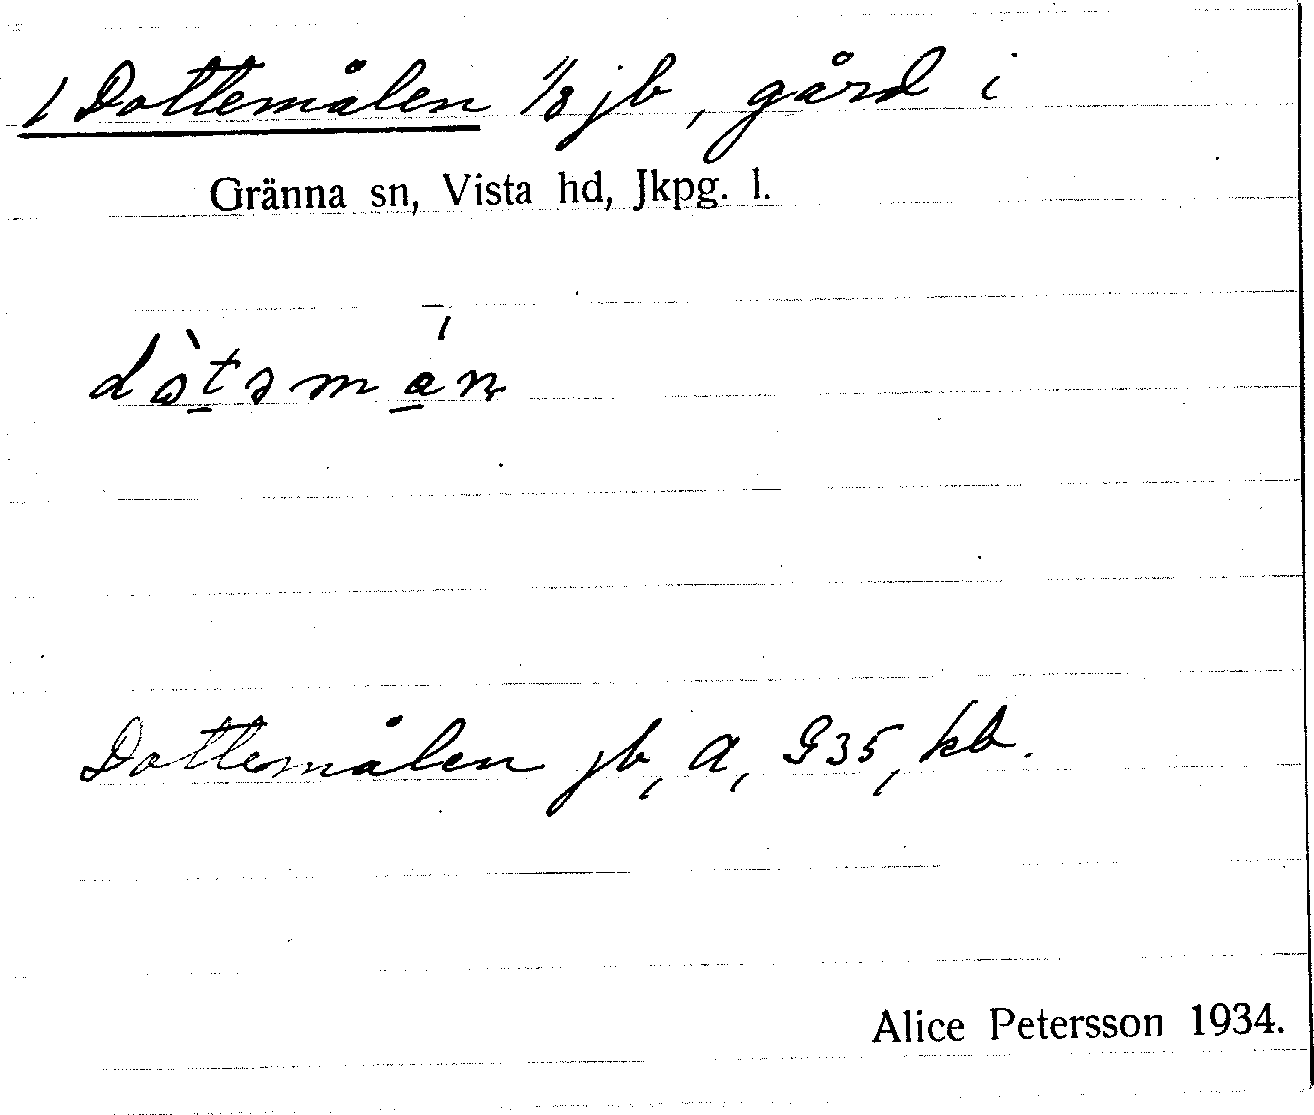 1 Dottemålen 1/8 jb, gård i
Gränna sn, Vista hd, Jkpg. l.
Dottemålen jb, A, G35, kb.
Alice Petersson 1934.